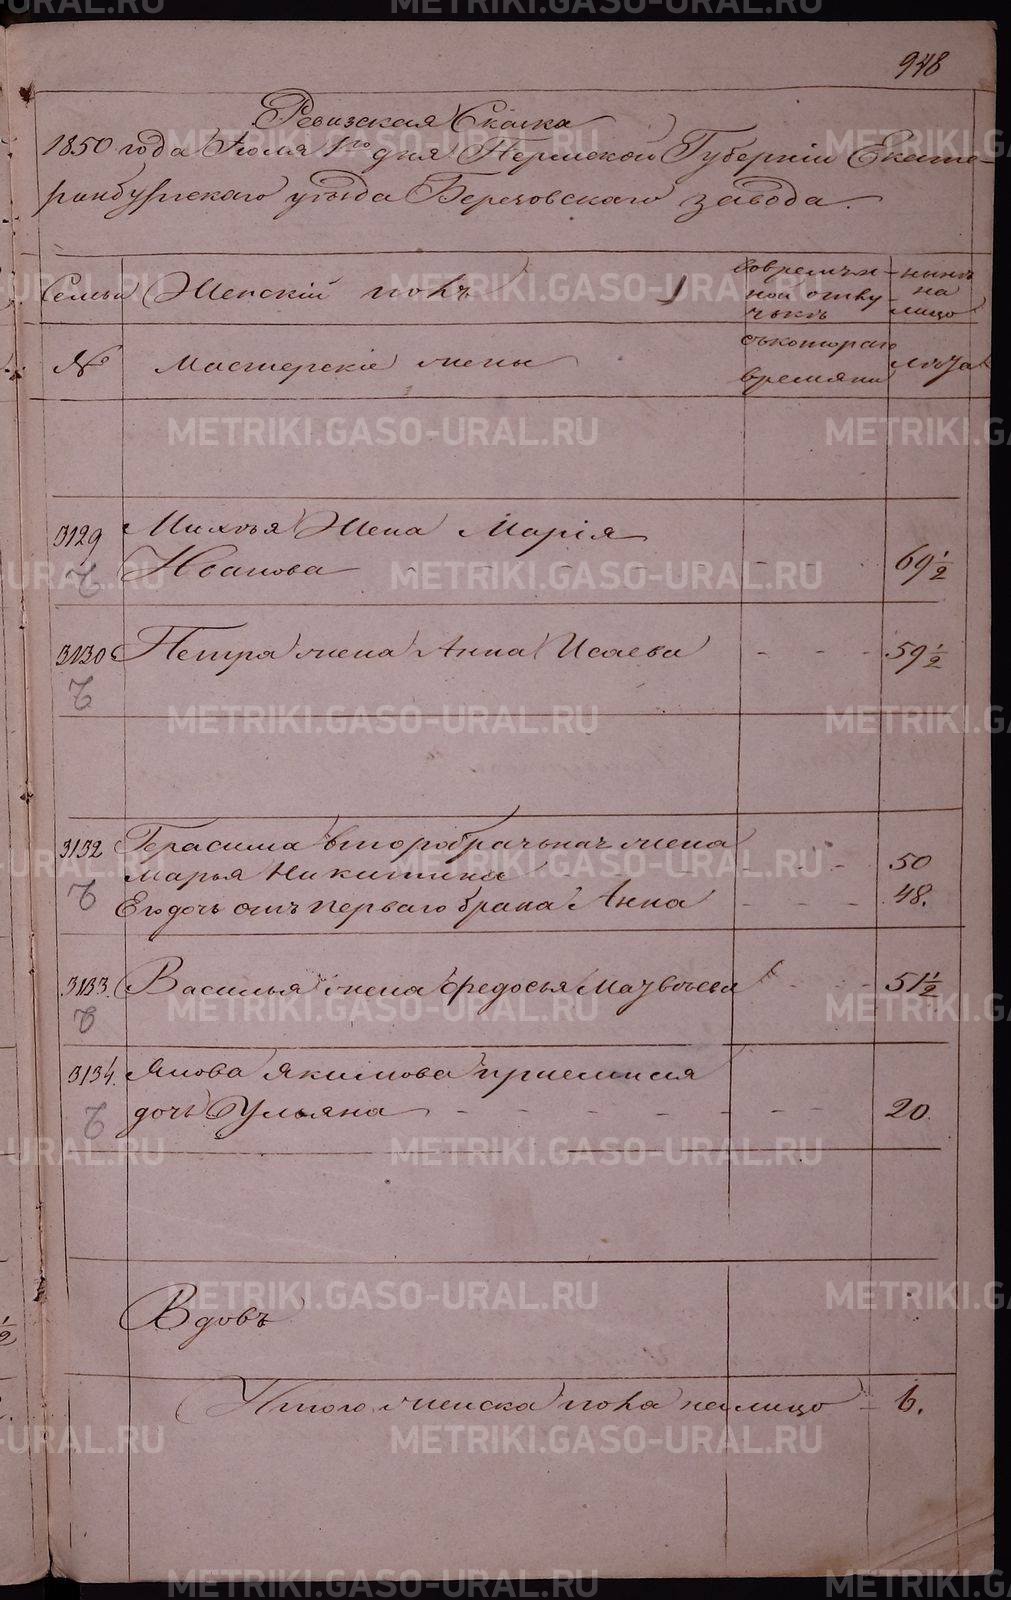 948
Ревизская Скаска
1850 года Июля 1го дня Пермской Губернии Екате-
ринбургскаго уезда Березовскаго завода.
Семьи Женский полъ вовремян- нынѣ
ной отлу- на
чькѣ лицо
№ Мастерские жены съкотораго лѣта
времяни
3129 Михея Жена Марія
Иванова - - - - - - 69 1/2
3130 Петра жена Анна Исаева - - - 59 1/2
3132 Герасима второбрачьная жена
Марья Никитина - - - - 50
Его дочь отъ перваго брака Анна - - - 48.
3133. Василья жена Федосья Матвѣева - - - 51 1/2
3134. Якова Якимова приемныя
дочь Ульяна - - - - - - - - 20.
Вдовъ
Итого женска пола налицо = 6.
METRIKI.GASO-URAL.RU